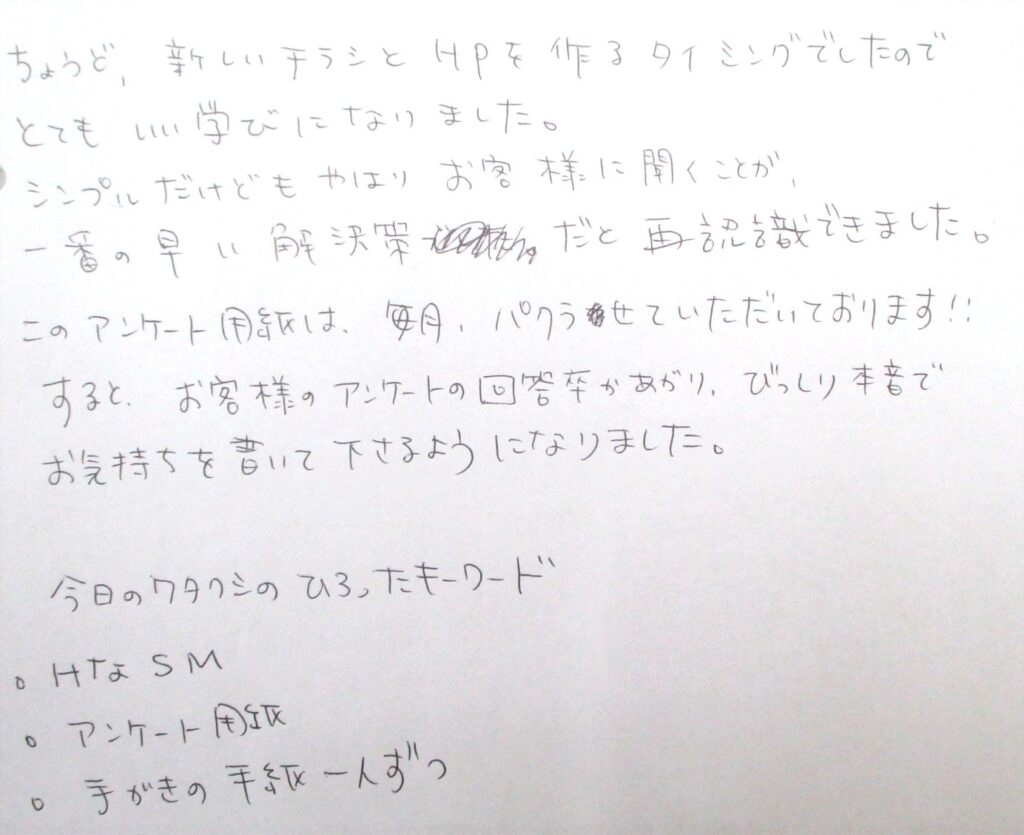 ちょうど、新しいチラシとHPを作るタイミングでしたので
とても いい学びになりました。
シンプルだけども やはり お客様に聞くことが、
一番の早い解決策 だと再認識できました。
このアンケート用紙は、毎月、パクらせていただいております!!
すると、お客様のアンケートの回答率があがり、びっしり本音で
お気持ちを書いて下さるようになりました。
今日のワタクシのひろったキーワード
。HなSM
。アンケート用紙
。手がきの手紙一人ずつ